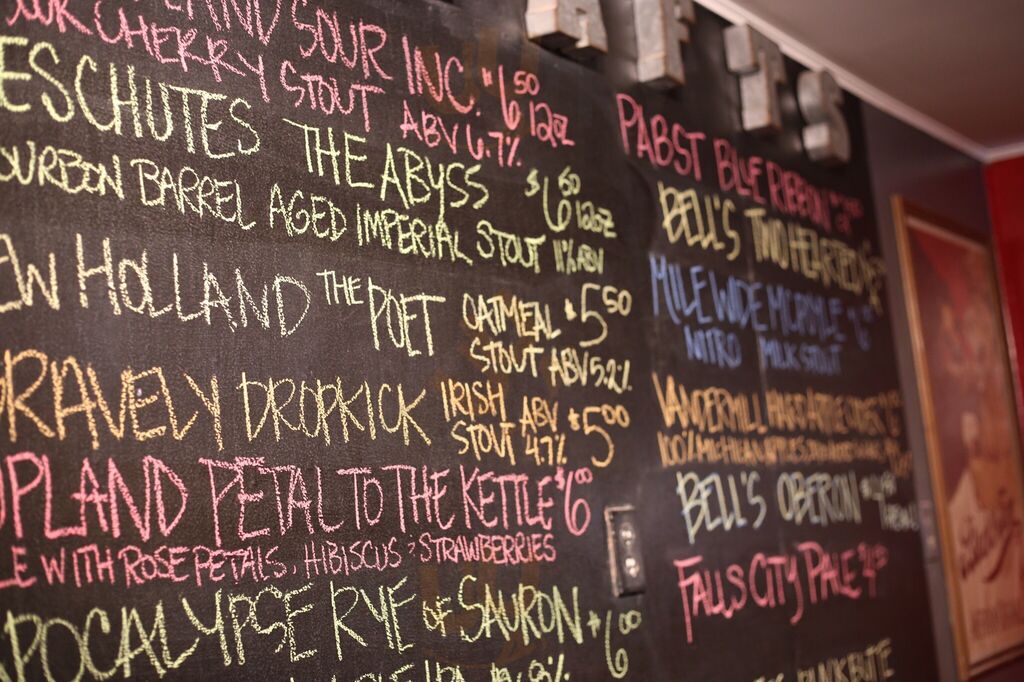 LAND SOUR INC. $6.50
OUR CHERRY STOUT ABV 6.7% 12OZ
ESCHUTES THE ABYSS $6.50 12OZ
OURBON BARREL AGED IMPERIAL STOUT 11% ABV
EW HOLLAND THE POET OATMEAL $5.50
STOUT ABV 5.2%
RAVELY DROPKICK IRISH ABV $5.00
STOUT 4.7%
UPLAND PETAL TO THE KETTLE $6.00
LE WITH ROSE PETALS, HIBISCUS & STRAWBERRIES
POCALYPSE RYE OF SAURON $6.00
IPA ABV
PABST BLUE RIBBON
BELL'S TWO HEARTED
MILE WIDE MCPOYLE
NITRO MILK STOUT
VANDERMILL HARD APPLE
100% MICHIGAN APPLES
BELL'S OBERON
FALLS CITY PALE